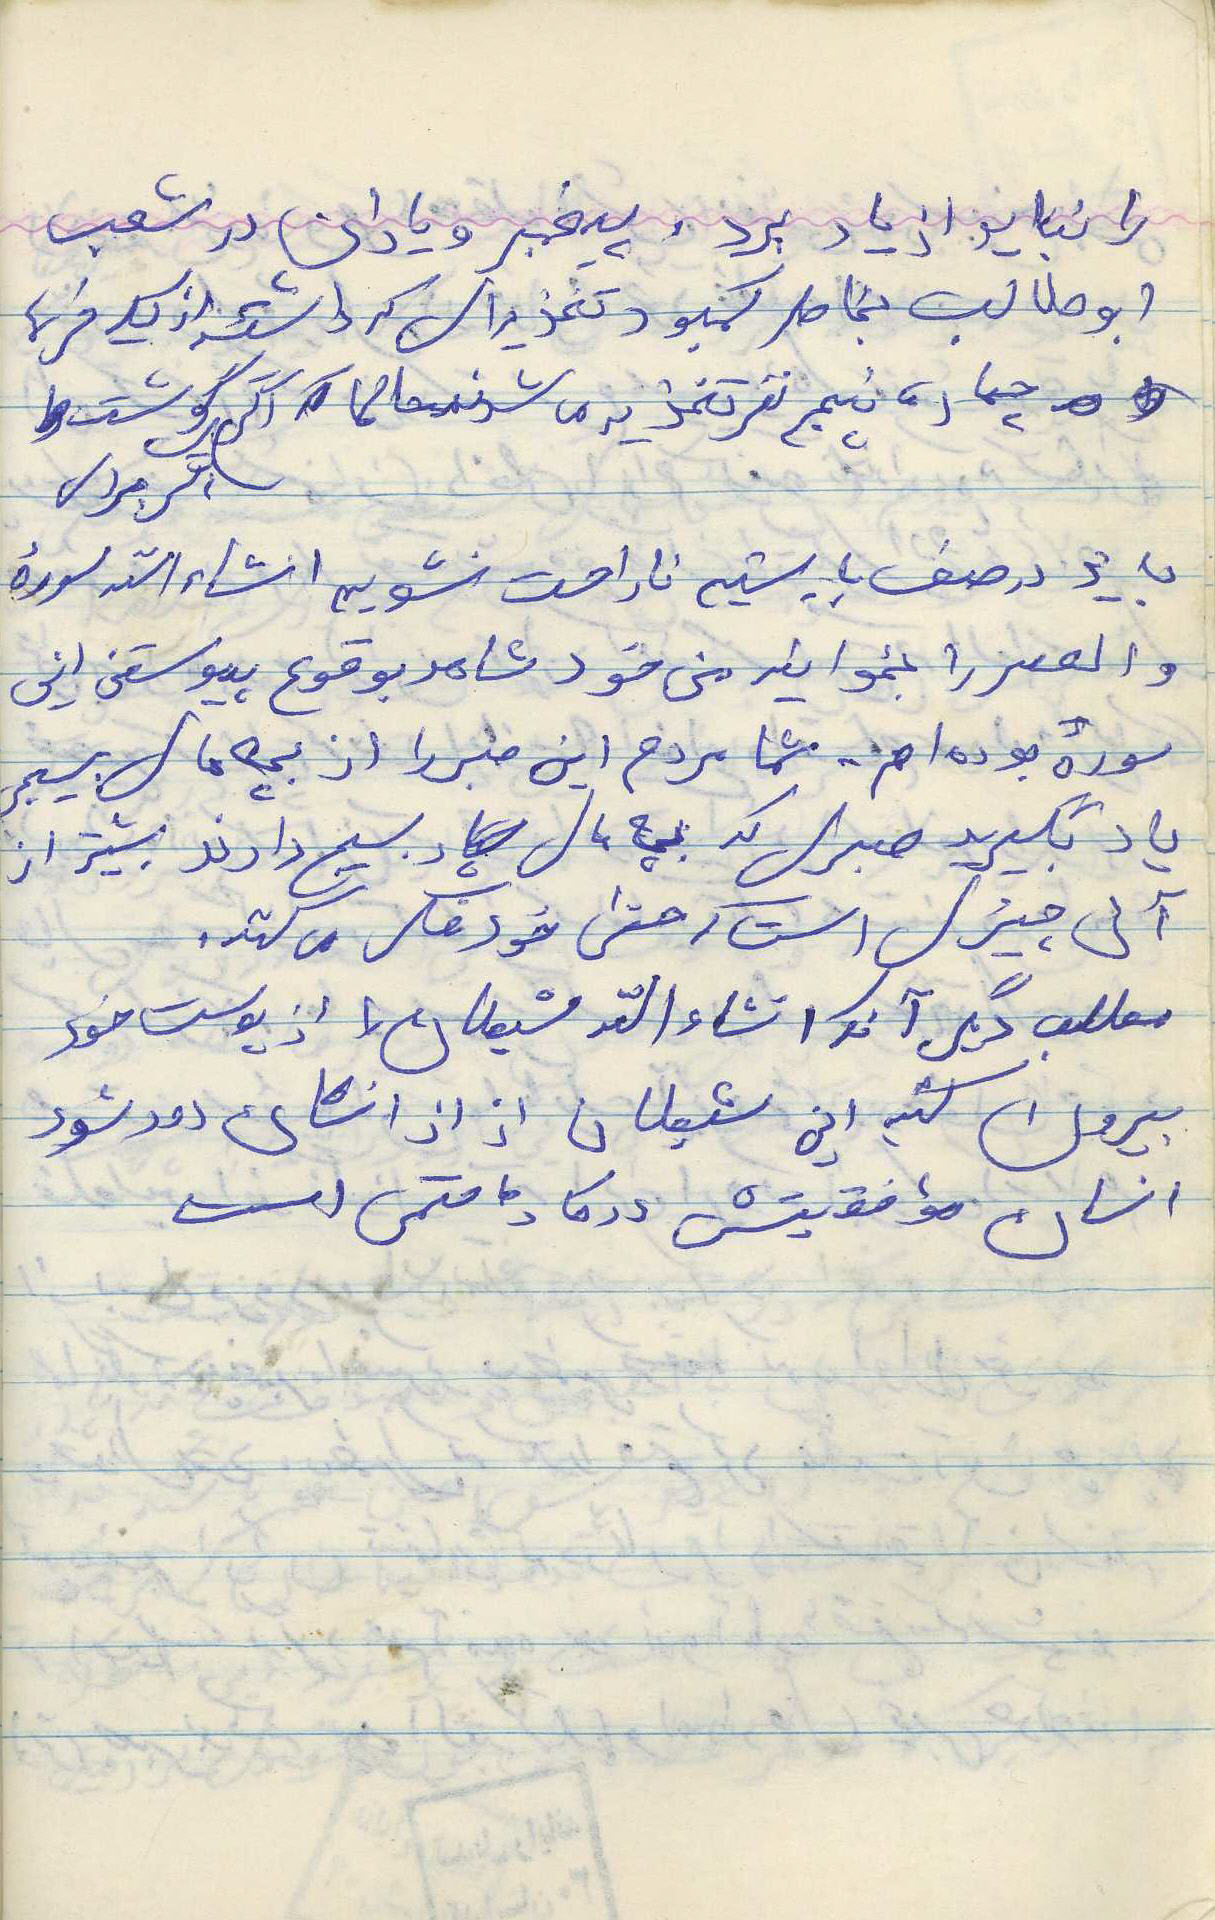 را نباید از یاد برد، پیغمبر و یارانش در شعب
ابوطالب بخاطر کمبود تغذیه‌ای که داشتند از یک خرما
چهار، پنج نفر تغذیه می شوند حالا ما که اگر گوشت
اگر برای
باید در صف بایستیم ناراحت نشویم انشاءالله سورهٔ
والعصر را بخوانید من خود شاهد بوقوع پیوستن این
سورهٔ بوده‌ام .. شما مردم این صبر را از بچه های بسیج
یاد بگیرید صبری که بچه های بسیج دارند بیشتر از
آن چیزی است که حتی خود فکر می کنند.
مطلب دیگر آنکه انشاءالله شیطان را از پوست خود
بیرون کنید این شیطان از از انسان دور شود
انسان مؤفقیتش در کارها حتمی است